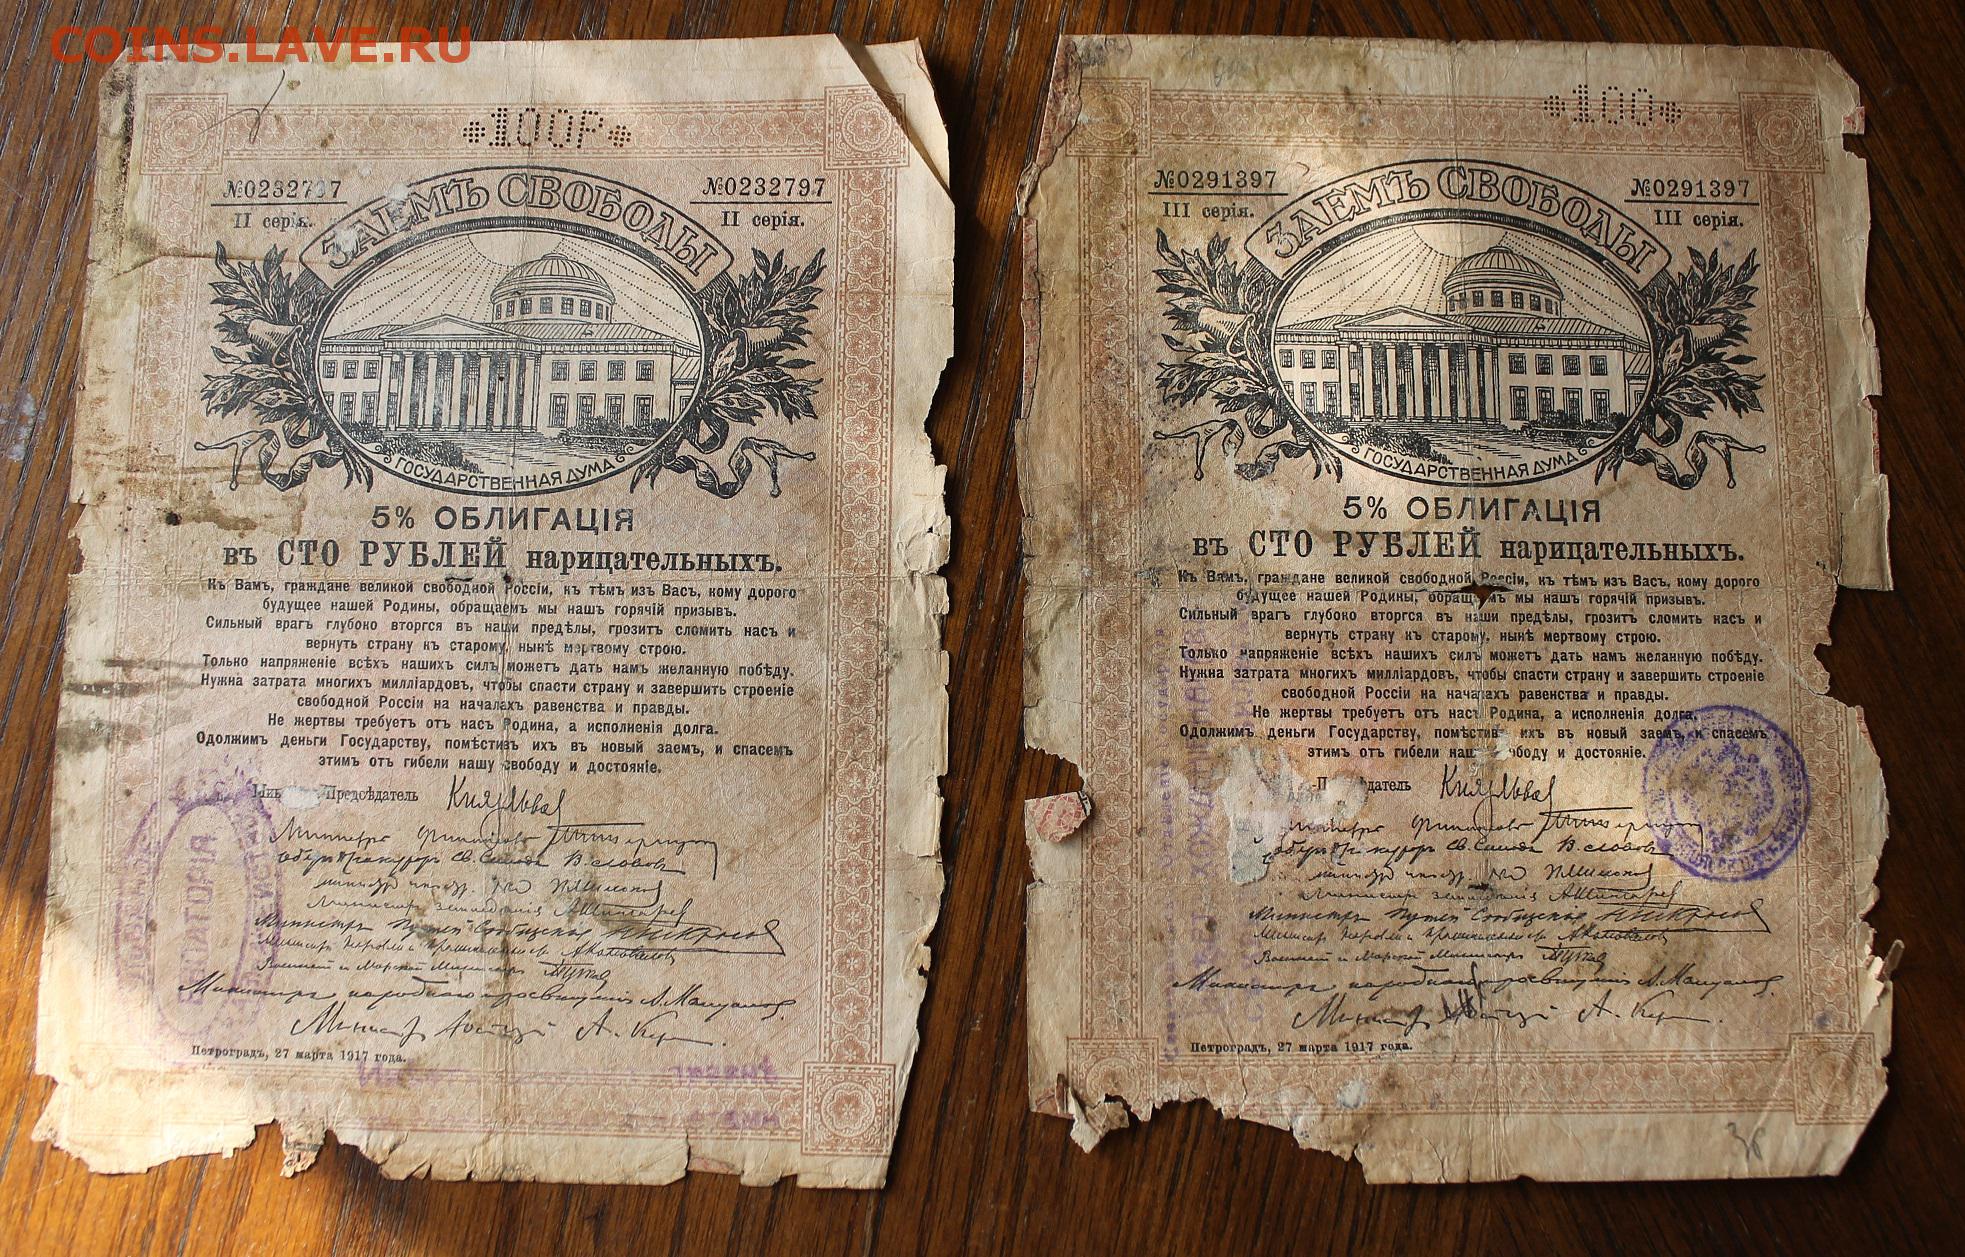 COINS.LAVE.RU
100Р
№0232797 №0232797
II серія. II серія.
ЗАЕМЪ СВОБОДЫ
ГОСУДАРСТВЕННАЯ ДУМА
5% ОБЛИГАЦІЯ
въ СТО РУБЛЕЙ нарицательныхъ.
Къ Вамъ, граждане великой свободной Россіи, къ тѣмъ изъ Васъ, кому дорого
будущее нашей Родины, обращаемъ мы нашъ горячій призывъ.
Сильный врагъ глубоко вторгся въ наши предѣлы, грозитъ сломить насъ и
вернуть страну къ старому, нынѣ мертвому строю.
Только напряженіе всѣхъ нашихъ силъ можетъ дать намъ желанную побѣду.
Нужна затрата многихъ милліардовъ, чтобы спасти страну и завершить строеніе
свободной Россіи на началахъ равенства и правды.
Не жертвы требуетъ отъ насъ Родина, а исполненія долга.
Одолжимъ деньги Государству, помѣстивъ ихъ въ новый заемъ, и спасемъ
этимъ отъ гибели нашу свободу и достояніе.
Предсѣдатель Князь Львов
Министръ Финансовъ
Оберъ Прокуроръ Св. Синода В. Львовъ
Министръ Путей Сообщенія Н. Некрасов
Министръ Торговли и Промышленности А. Коноваловъ
Военный и Морской Министръ Гучков
Министръ народнаго просвѣщенія А. Мануилов.
Министр Юстиціи А. Кер
Петроградъ, 27 марта 1917 года.
100
№0291397 №0291397
III серія. III серія.
ЗАЕМЪ СВОБОДЫ
ГОСУДАРСТВЕННАЯ ДУМА
5% ОБЛИГАЦІЯ
въ СТО РУБЛЕЙ нарицательныхъ.
Къ Вамъ, граждане великой свободной Россіи, къ тѣмъ изъ Васъ, кому дорого
будущее нашей Родины, обращаемъ мы нашъ горячій призывъ.
Сильный врагъ глубоко вторгся въ наши предѣлы, грозитъ сломить насъ и
вернуть страну къ старому, нынѣ мертвому строю.
Только напряженіе всѣхъ нашихъ силъ можетъ дать намъ желанную побѣду.
Нужна затрата многихъ милліардовъ, чтобы спасти страну и завершить строеніе
свободной Россіи на началахъ равенства и правды.
Не жертвы требуетъ отъ насъ Родина, а исполненія долга.
Одолжимъ деньги Государству, помѣстивъ ихъ въ новый заемъ, и спасемъ
этимъ отъ гибели нашу свободу и достояніе.
Князь Львов
Министръ Финансовъ
Св. Синода В. Львовъ
Министръ Путей Сообщенія Н. Некрасов
Министръ Торговли и Промышленности А. Коноваловъ
Военный и Морской Министръ Гучков
Министръ народнаго просвѣщенія А. Мануилов.
Министр Юстиціи А. Кер
Петроградъ, 27 марта 1917 года.